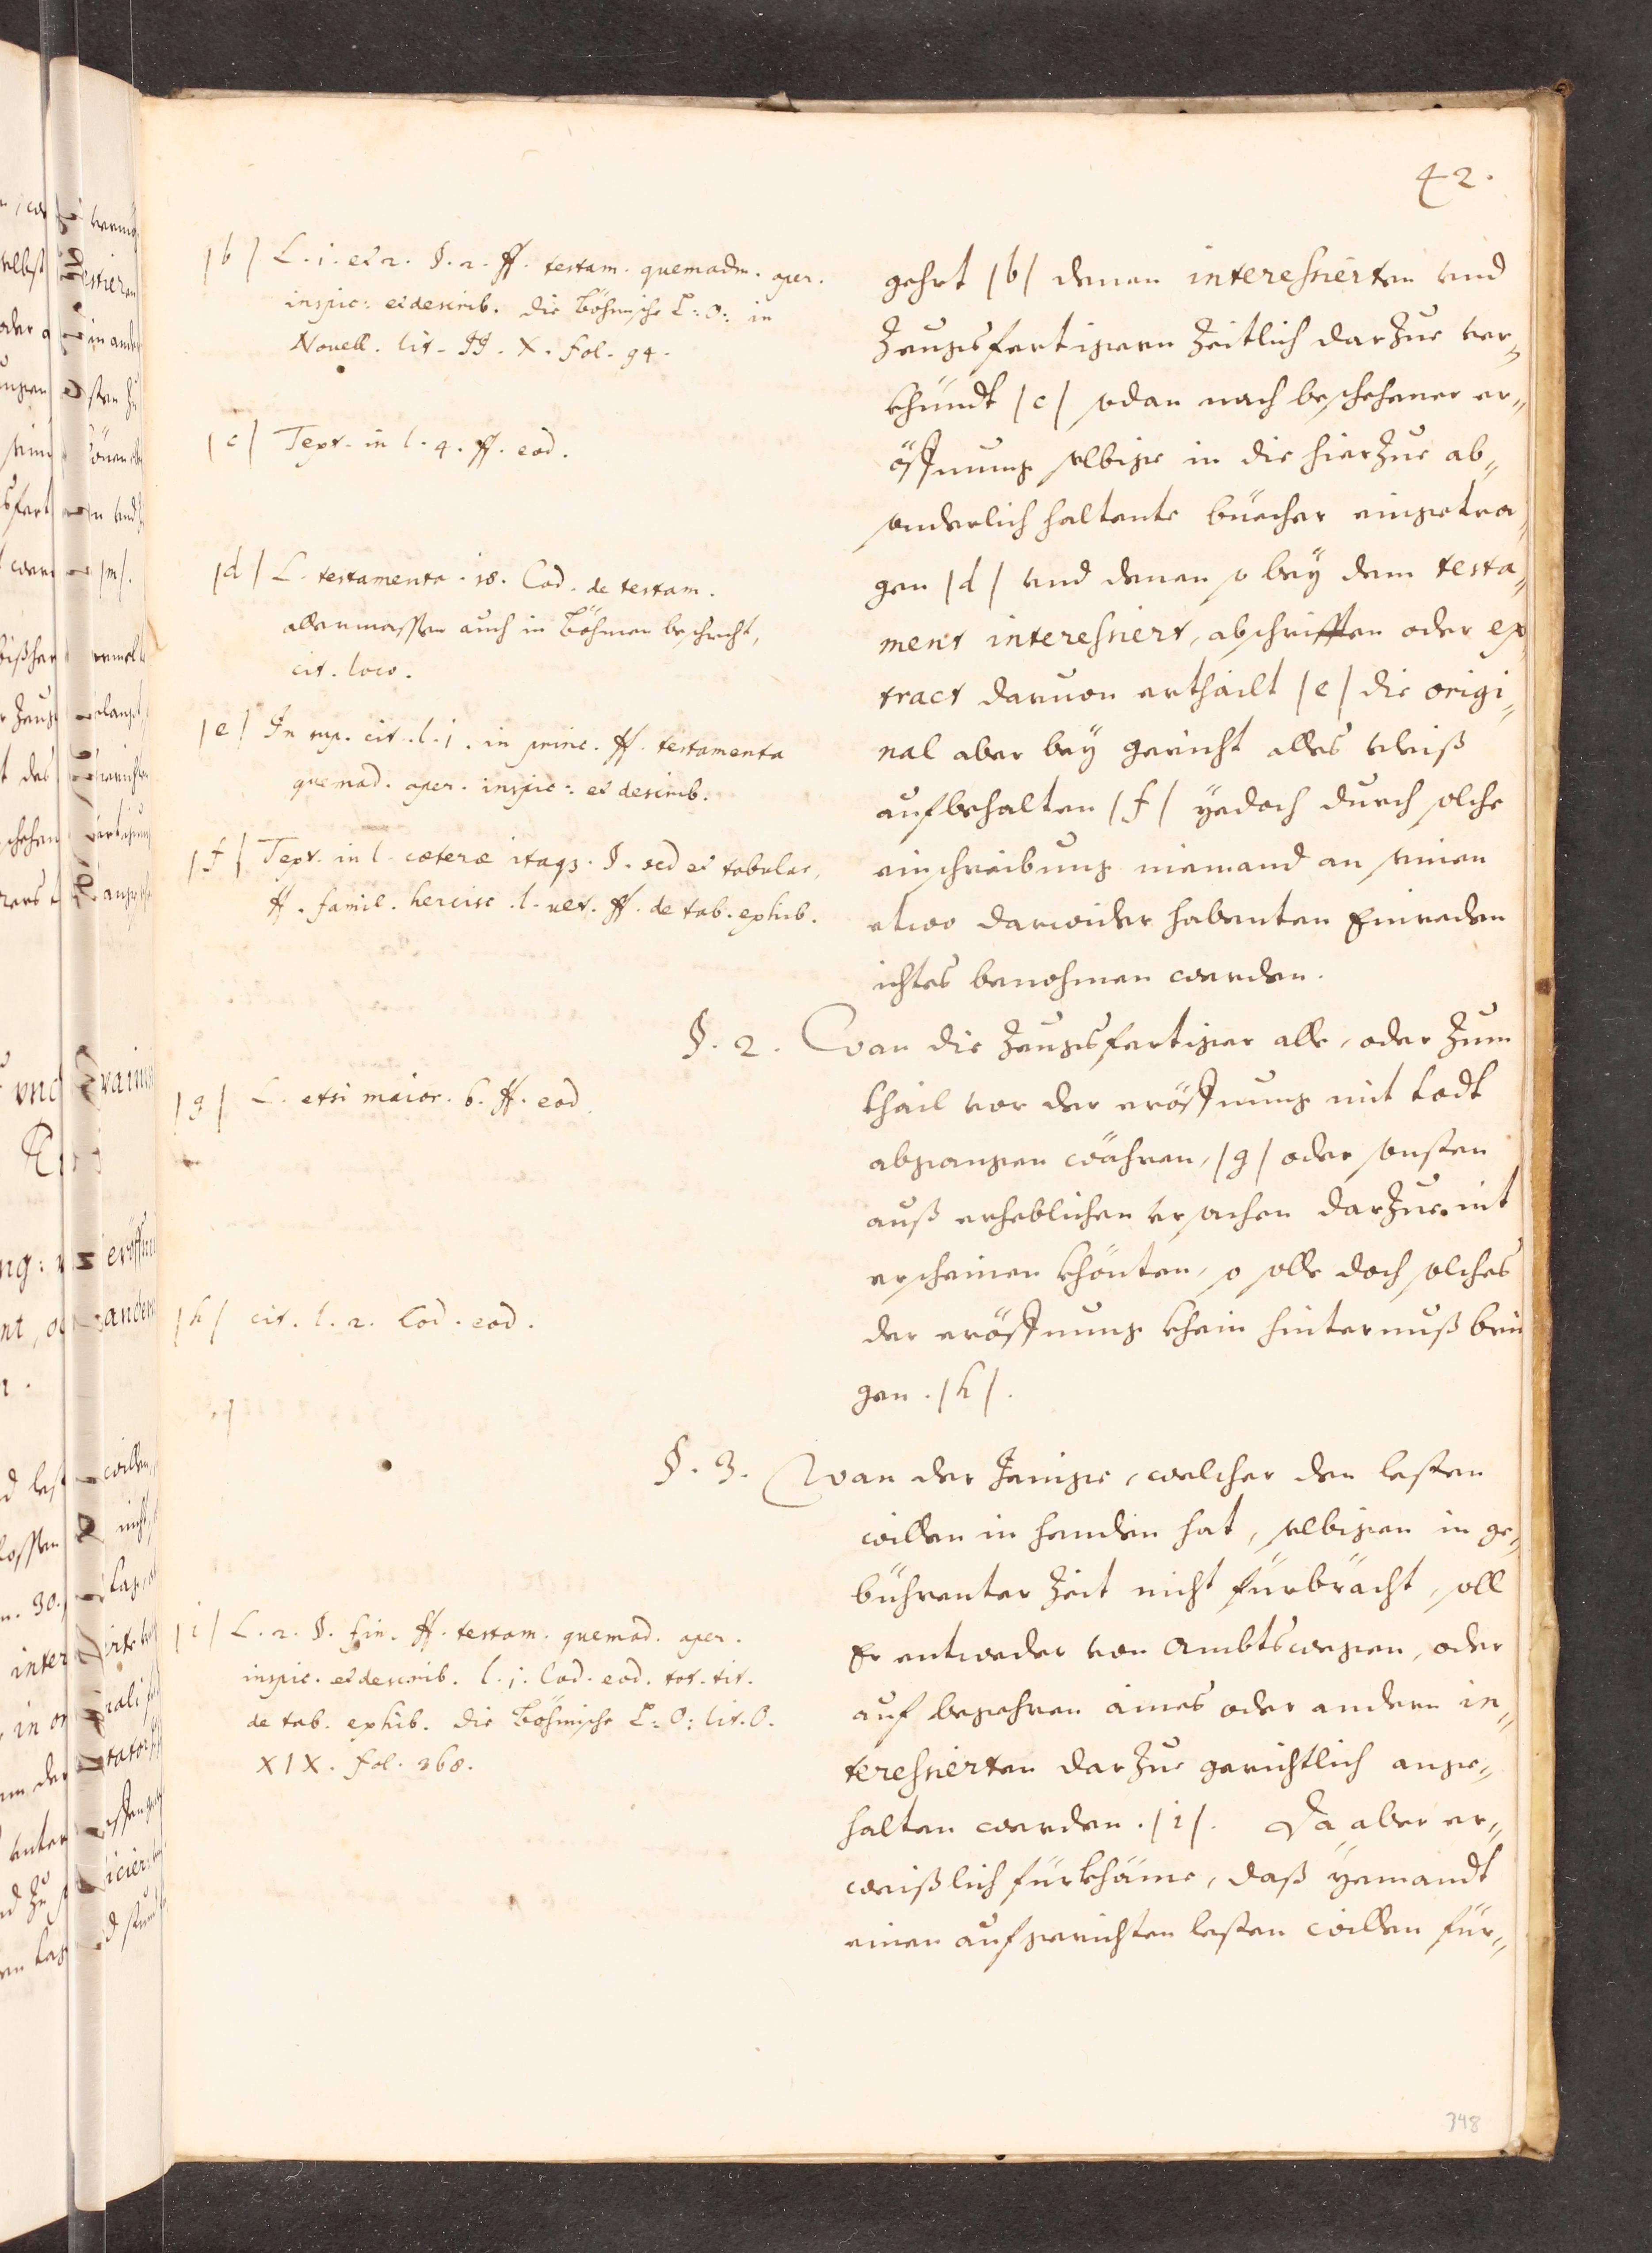 42.
/b/ L. 1. et 2. §. 2. ff. testam. quemadm. aper.
inspic: et describ. die Böhmische L: O: in
Novell. lit. JJ. X. fol. 94.
/c/ Text. in l. 4. ff. eod.
/d/ L. testamenta. 18. Cod. de testam.
allermassen auch in Böhmen beschicht,
cit. loco.
/e/ In sup. cit. l. 1. in princ. ff. testamenta
quemad. aper. inspic: et describ.
/f/ Text. in l. cæteræ itaq3. §. sed et tabulas,
ff. famil. hercisc. l. ult. ff. de tab. exhib.
/g/ L. etsi maior. 6. ff. eod.
/h/ cit. l. 2. Cod. eod.
/i/ L. 2. §. fin. ff. testam. quemad. aper.
inspic. et describ. l. 1. Cod. eod. tot. tit.
de tab. exhib. die Böhmische L: O: lit. O.
XIX. fol. 368.
gehrt /b/ denen interessierten vnd
Zeugsfertigern Zeitlich darzue ver„
khündt /c/ sodan nach beschehener er„
öffnung selbige in die hierzue ab„
sonderlich haltente büecher eingetra„
gen /d/ vnd denen so bey dem testa„
ment interessiert, abschrifften oder ex„
tract daruon erthailt /e/ die origi„
nal aber bey gericht alles vleiß
aufbehalten /f/ yedoch durch solche
einschreibung niemand an seinen
etwo darwider habenten Einreden
ichtes benohmen werden.
§. 2. Wan die Zeugsfertiger alle, oder Zum
thail vor der eröffnung mit todt
abgangen wåhren, /g/ oder sonsten
auß erheblichen vrsachen darzue nit
erscheinen khönten, so solle doch solches
der eröffnung khein hinternuß brin
gen. /h/.
§. 3. Wan der Jenige, welcher den lesten
willen in handen hat, selbigen in ge„
bührenter Zeit nicht fürbrächt, soll
Er entweder von Ambtswegen, oder
auf begehren aines oder andern in„
teressierten darzue gerichtlich ange„
halten werden. /i/. Da aber er„
weißlich fürkhäme, daß yemandt
einen aufgerichten lesten willen für„
348